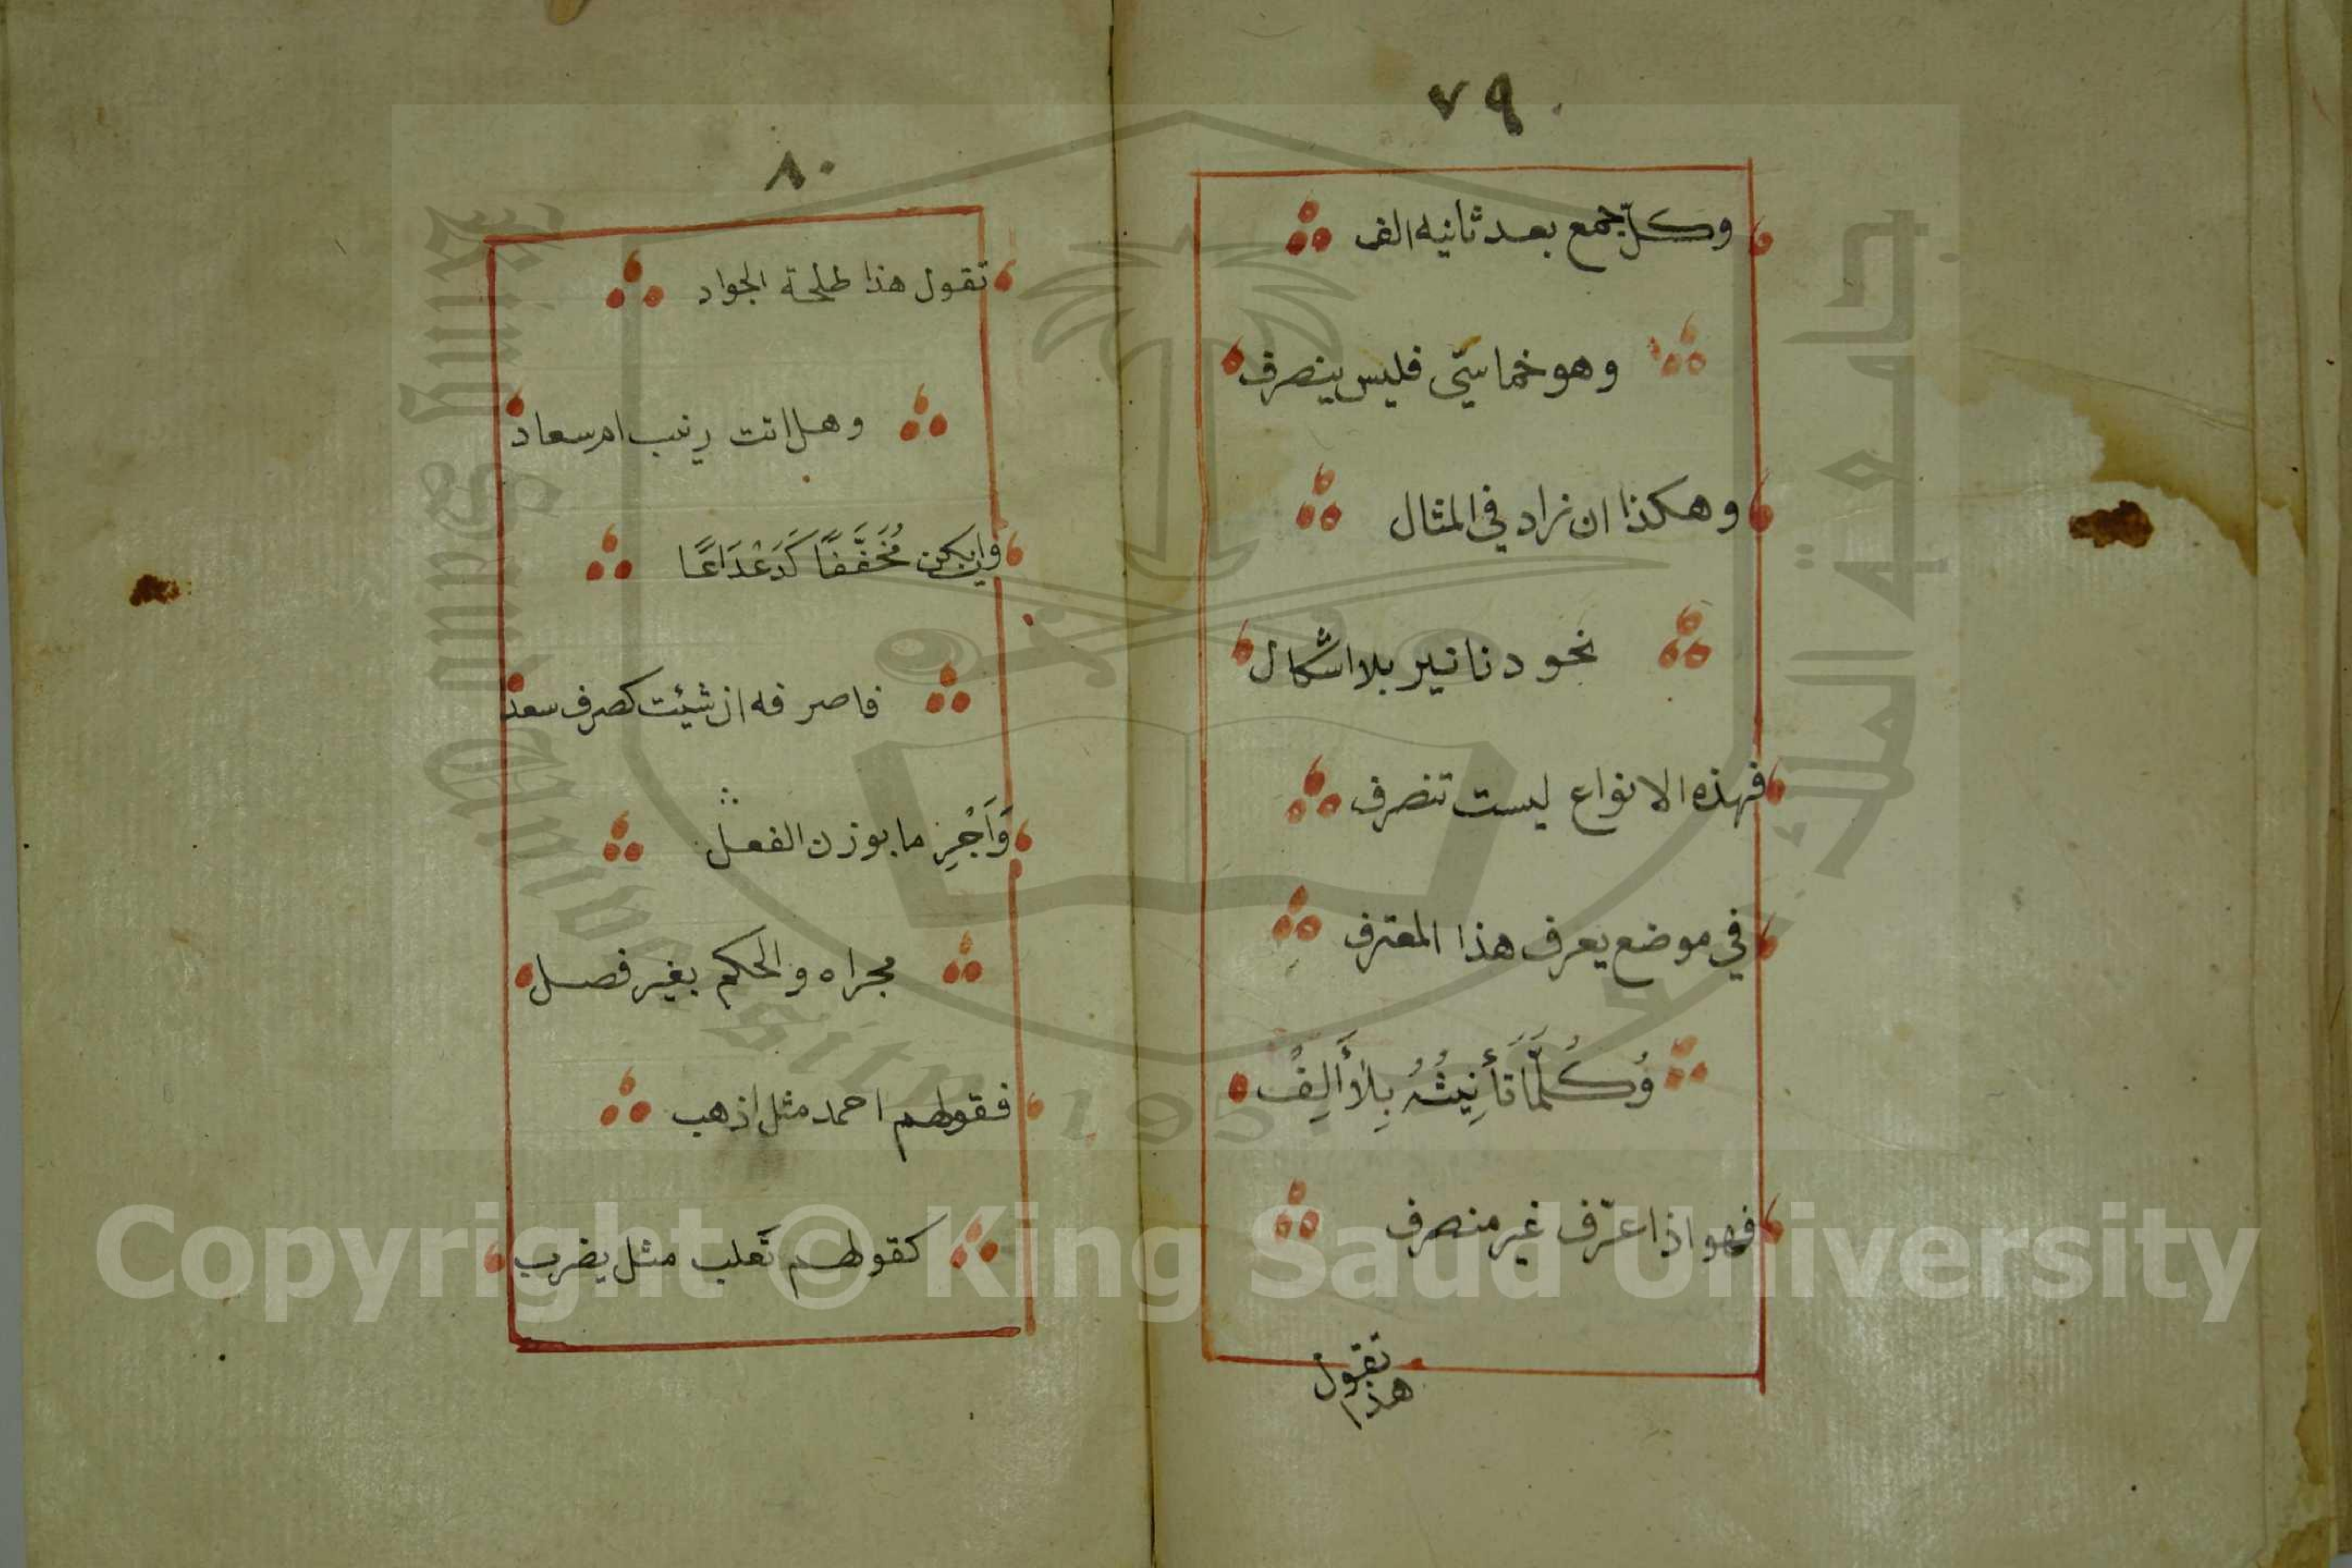 ٧٩
وكلّ جمع بعد ثانيه الف
وهو خماسيّ فليس ينصرف
وهكذا ان زاد في المثال
نحو دنانير بلا اشكال
فهذه الانواع ليست تنصرف
في موضع يعرف هذا المعترف
وَكُلَّمَا تَأنِيثُهُ بِلاَ أَلِفْ
فهو اذا عرّف غير منصرف
تقول
هذا
٨٠
تقول هذا طلحة الجواد
وهل اتت زينب ام سعاد
وان يكن مُخَفَّفًا كَدَعْدَاعًا
فاصرفه ان شئت كصرف سعد
وَاَجْرِ ما بوزن الفعل
مجراه والحكم بغير فصل
فقولهم احمد مثل اذهب
كقولهم تَغلب مثل يضرب
جامعة الملك سعود
King Saud University
1957
Copyright © King Saud University